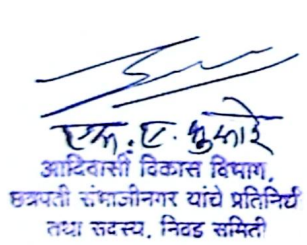 एस. ए. भुकारे
आदिवासी विकास विभाग,
छत्रपती संभाजीनगर यांचे प्रतिनिधी
तथा सदस्य, निवड समिती